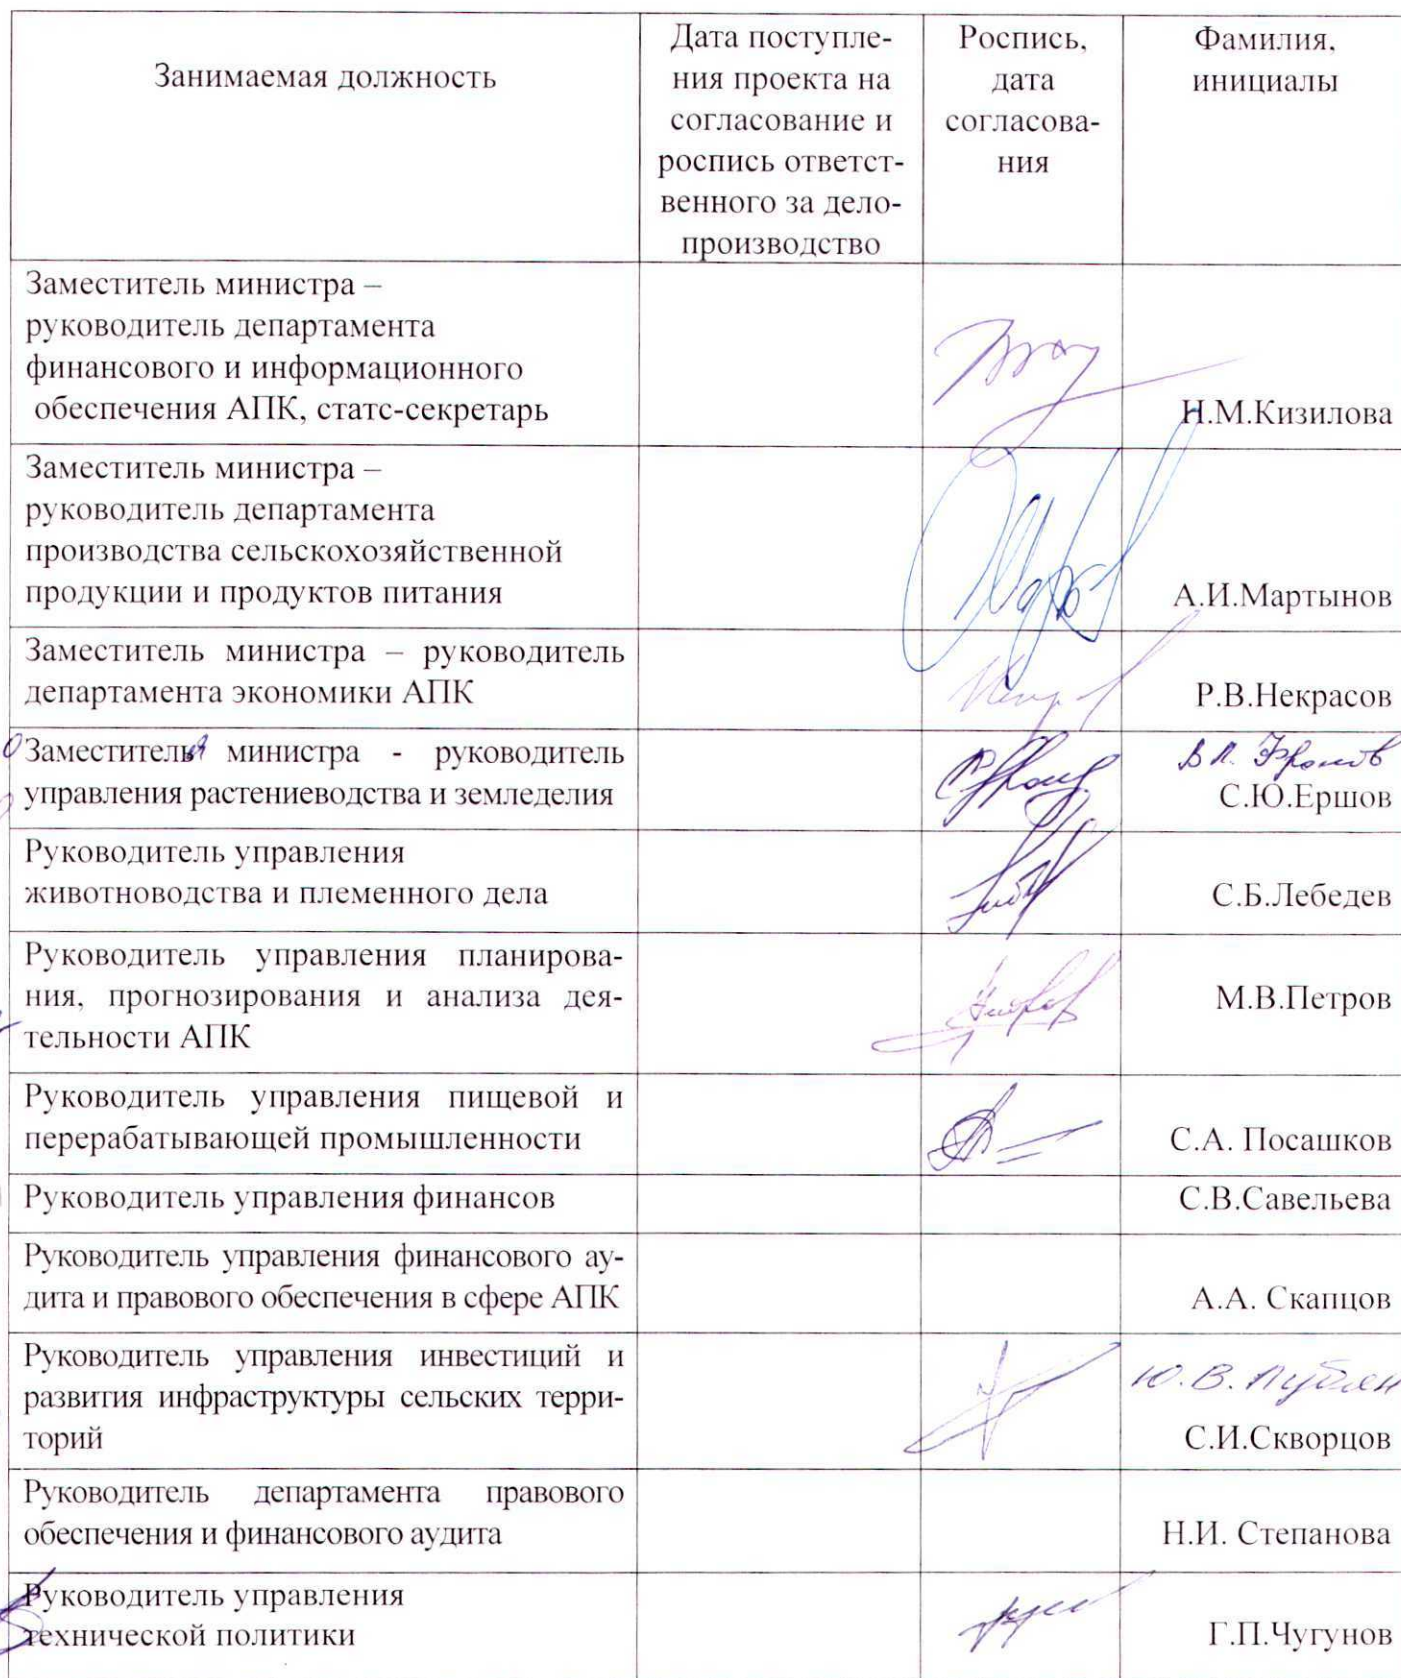 Занимаемая должность
Дата поступле-
ния проекта на
согласование и
роспись ответст-
венного за дело-
производство
Роспись,
дата
согласова-
ния
Фамилия,
инициалы
Заместитель министра –
руководитель департамента
финансового и информационного
обеспечения АПК, статс-секретарь
Н.М.Кизилова
Заместитель министра –
руководитель департамента
производства сельскохозяйственной
продукции и продуктов питания
А.И.Мартынов
Заместитель министра – руководитель
департамента экономики АПК
Р.В.Некрасов
Заместитель министра - руководитель
управления растениеводства и земледелия
С.Ю.Ершов
Руководитель управления
животноводства и племенного дела
С.Б.Лебедев
Руководитель управления планирова-
ния, прогнозирования и анализа дея-
тельности АПК
М.В.Петров
Руководитель управления пищевой и
перерабатывающей промышленности
С.А. Посашков
Руководитель управления финансов
С.В.Савельева
Руководитель управления финансового ау-
дита и правового обеспечения в сфере АПК
А.А. Скапцов
Руководитель управления инвестиций и
развития инфраструктуры сельских терри-
торий
Ю.В.
С.И.Скворцов
Руководитель департамента правового
обеспечения и финансового аудита
Н.И. Степанова
Руководитель управления
технической политики
Г.П.Чугунов